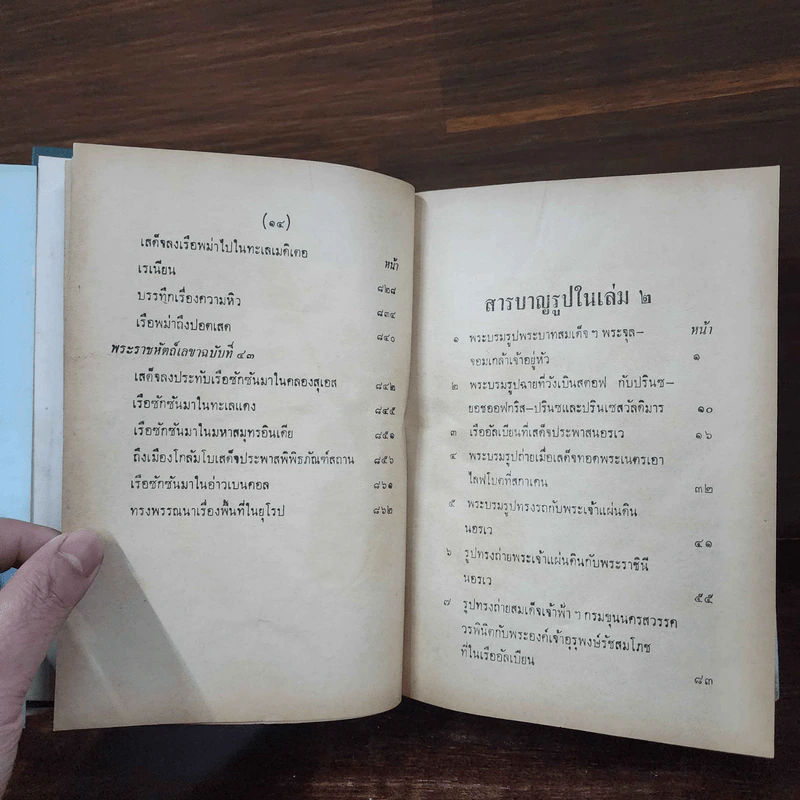 (๑๔)
เสด็จลงเรือพม่าไปในทะเลเมดิเตอ
เรเนียน
หน้า
๘๒๘
บรรทึกเรื่องความหิว ๘๓๔
เรือพม่าถึงปอตเสด ๘๔๐
พระราชหัตถ์เลขาฉบับที่ ๔๓
เสด็จลงประทับเรือซักซันมาในคลองสุเอส ๘๔๒
เรือซักซันมาในทะเลแดง ๘๔๕
เรือซักซันมาในมหาสมุทรอินเดีย ๘๕๑
ถึงเมืองโกลัมโบเสด็จประพาสพิพิธภัณฑ์สถาน ๘๕๖
เรือซักซันมาในอ่าวเบนคอล ๘๖๑
ทรงพรรณนาเรื่องพื้นที่ในยุโรป ๘๖๒
สารบาญรูปในเล่ม ๒
หน้า
๑ พระบรมรูปพระบาทสมเด็จ ฯ พระจุล-
จอมเกล้าเจ้าอยู่หัว ๑
๒ พระบรมรูปฉายที่วังเบินสตอฟ กับปรินซ-
ยอชออฟกริส-ปรินซและปรินเซสวัลดิมาร ๑๐
๓ เรืออัลเบียนที่เสด็จประพาสนอรเว ๑๖
๔ พระบรมรูปถ่ายเมื่อเสด็จทอดพระเนตรเอา
ไลฟโบตที่สกาเคน ๓๒
๕ พระบรมรูปทรงรถกับพระเจ้าแผ่นดิน
นอรเว ๔๑
๖ รูปทรงถ่ายพระเจ้าแผ่นดินกับพระราชินี
นอรเว ๕๕
๗ รูปทรงถ่ายสมเด็จเจ้าฟ้า ฯ กรมขุนนครสวรรค
วรพินิตกับพระองค์เจ้าอุรุพงษ์รัชสมโภช
ที่ในเรืออัลเบียน ๘๓